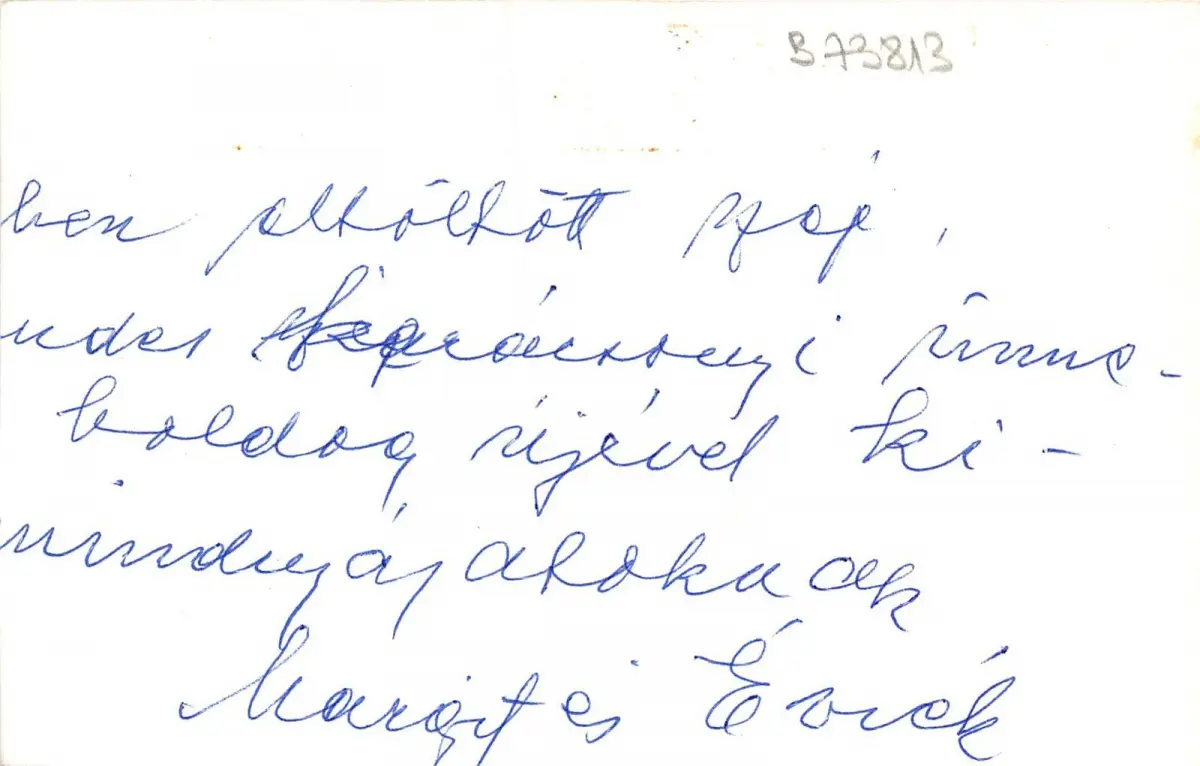 B 73813
ben eltöltött szép,
ndes karácsonyi ünne-
boldog újévet kí-
mindnyájatoknak
Margit és Évicék